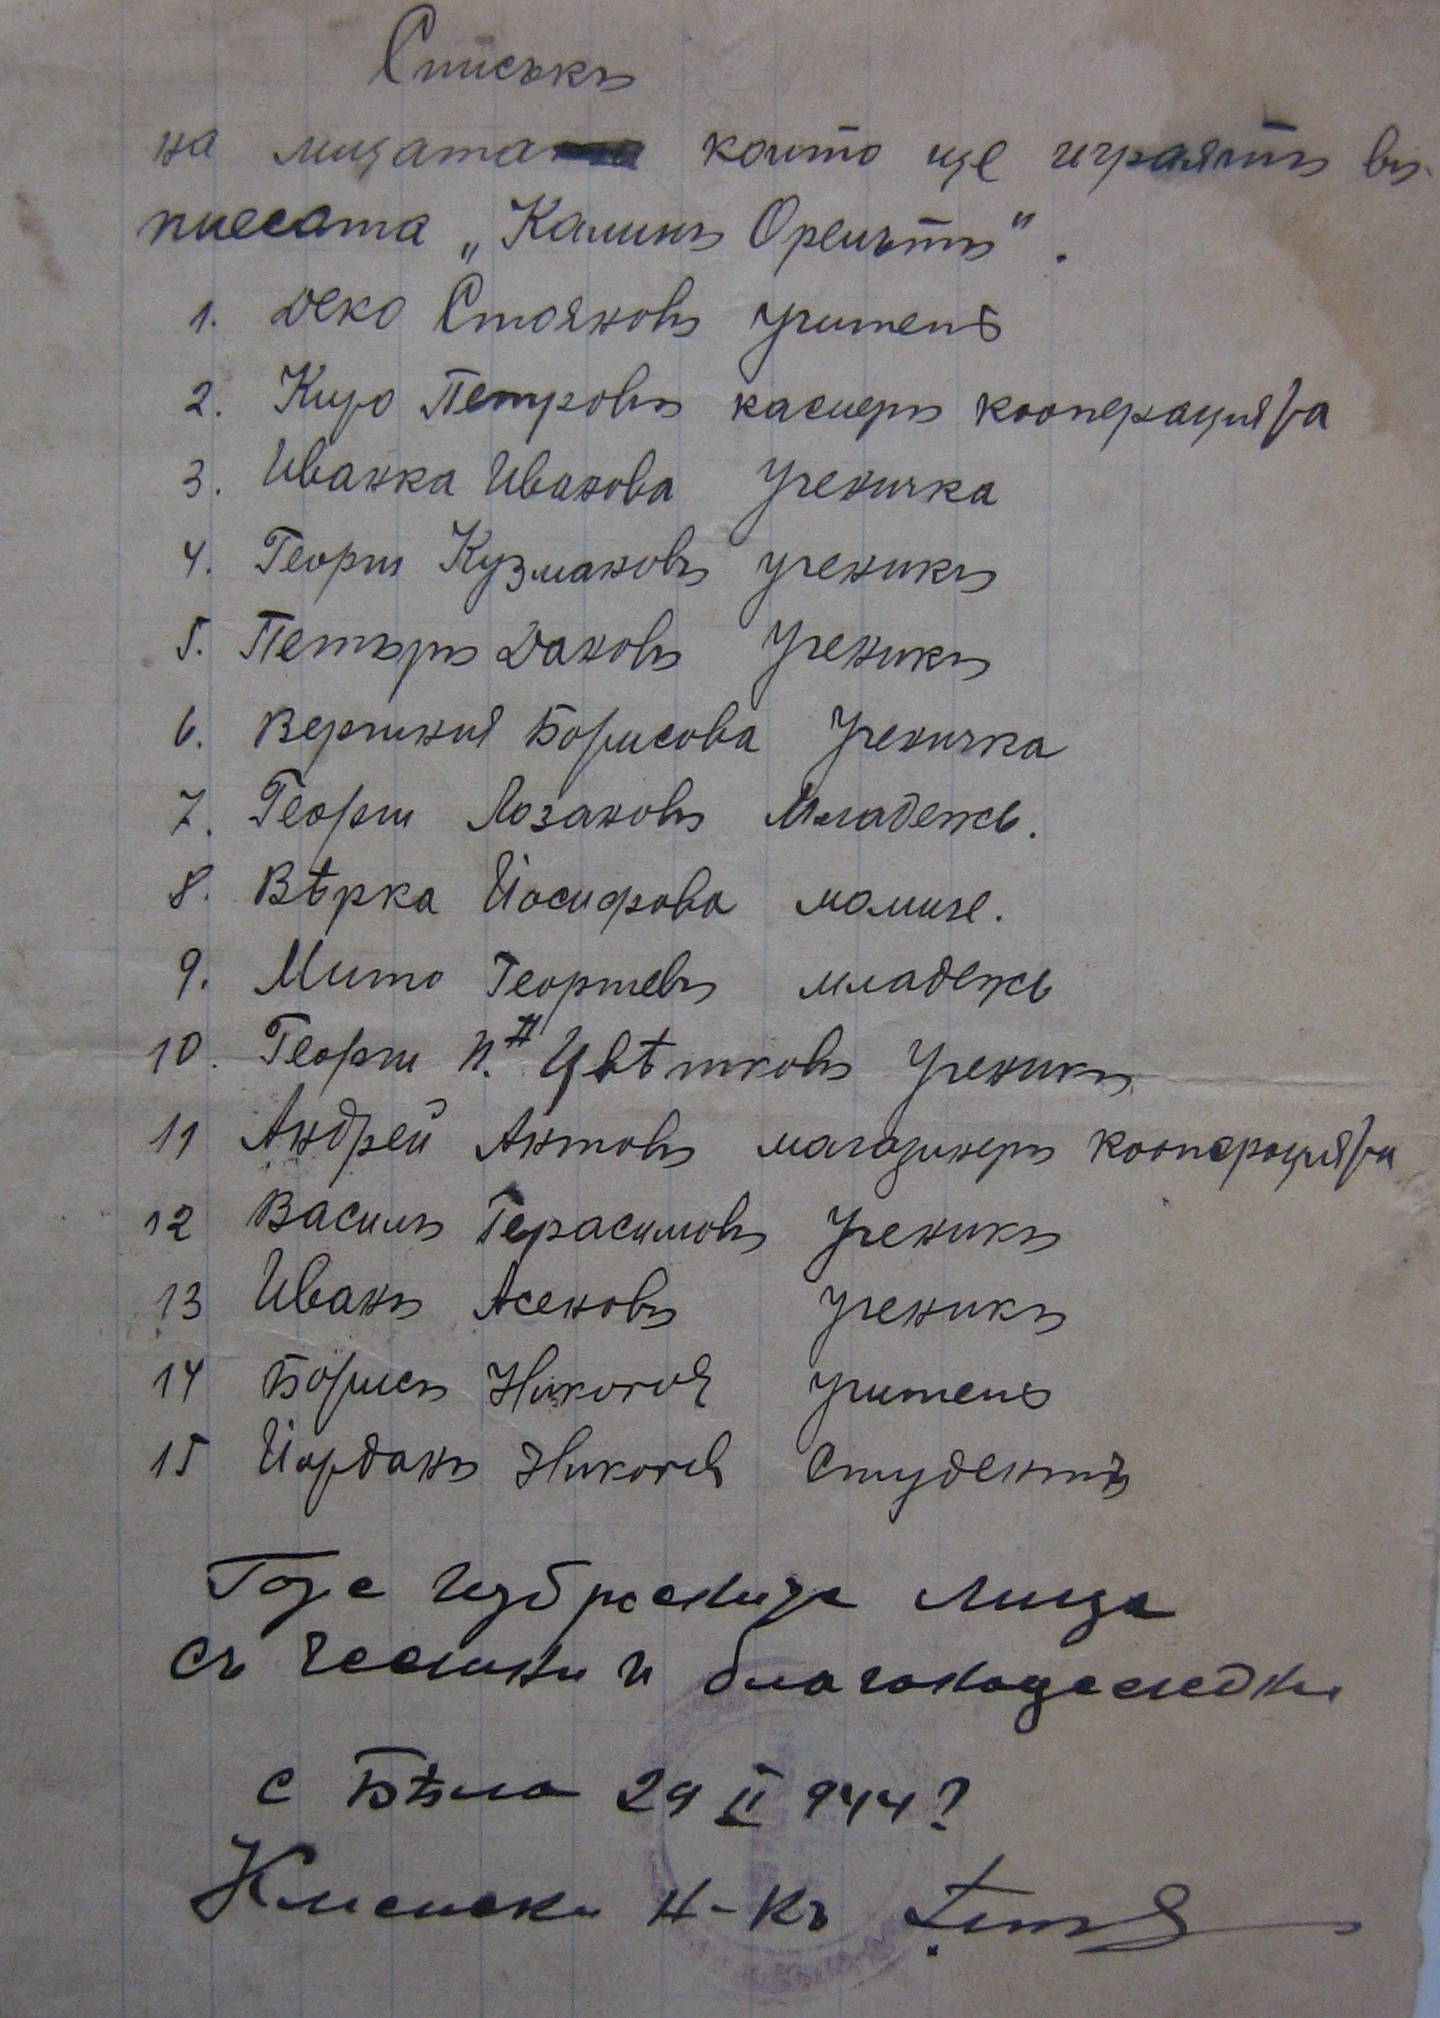 Списъкъ
на лицата които ще играятъ въ
пиесата „Калинъ Орелътъ".
1. Деко Стояновъ учитель
2. Киро Петровъ касиеръ кооперация/та
3. Иванка Иванова ученичка
4. Георги Кузмановъ ученикъ
5. Петъръ Даковъ ученикъ
6. Вергиния Борисова ученичка
7. Георги Лозановъ младежь.
8. Вѣрка Йосифова момиче.
9. Мито Георгиевъ младежь
10. Георги П. II Цвѣтковъ ученикъ
11 Андрей Антовъ магазинеръ кооперация/та
12 Василъ Герасимовъ ученикъ
13 Иванъ Асеновъ ученикъ
14 Борисъ Николов учитель
15 Йорданъ Николов студентъ
лица
съ честни и благонадеждни
с Бѣла 29 II 944 г
Н-къ